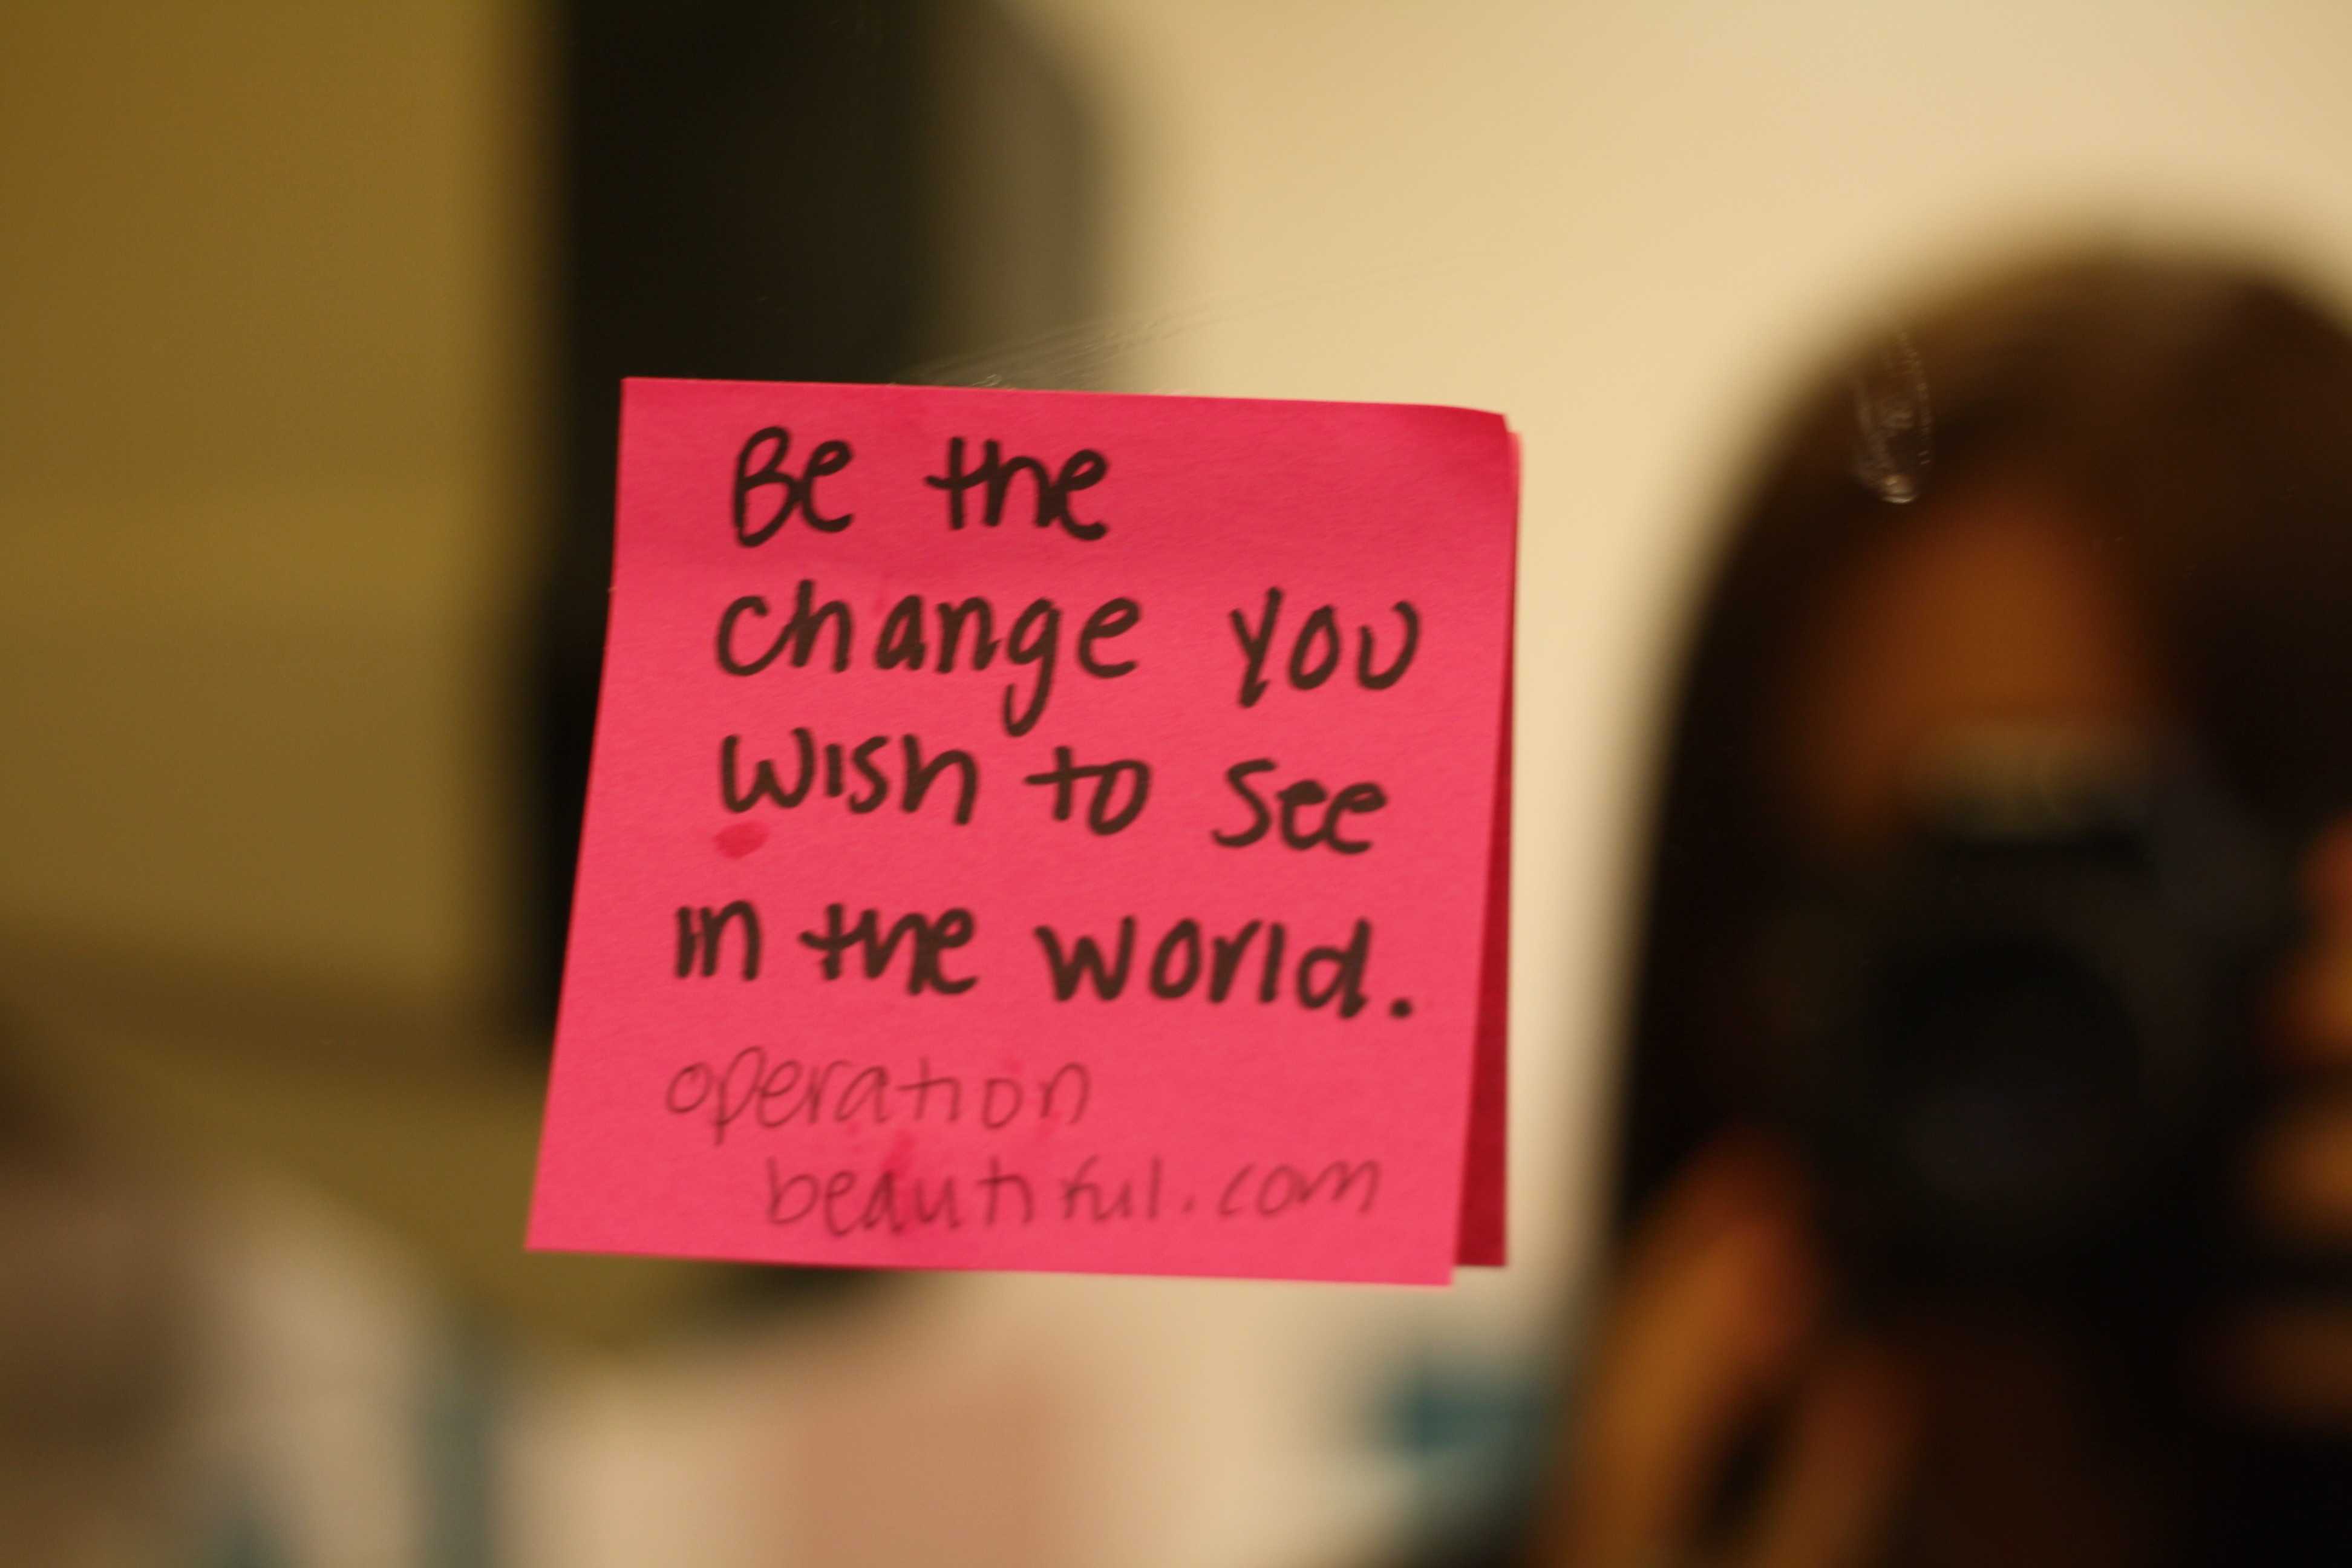 Be the
change you
wish to see
in the world.
operation
beautiful.com